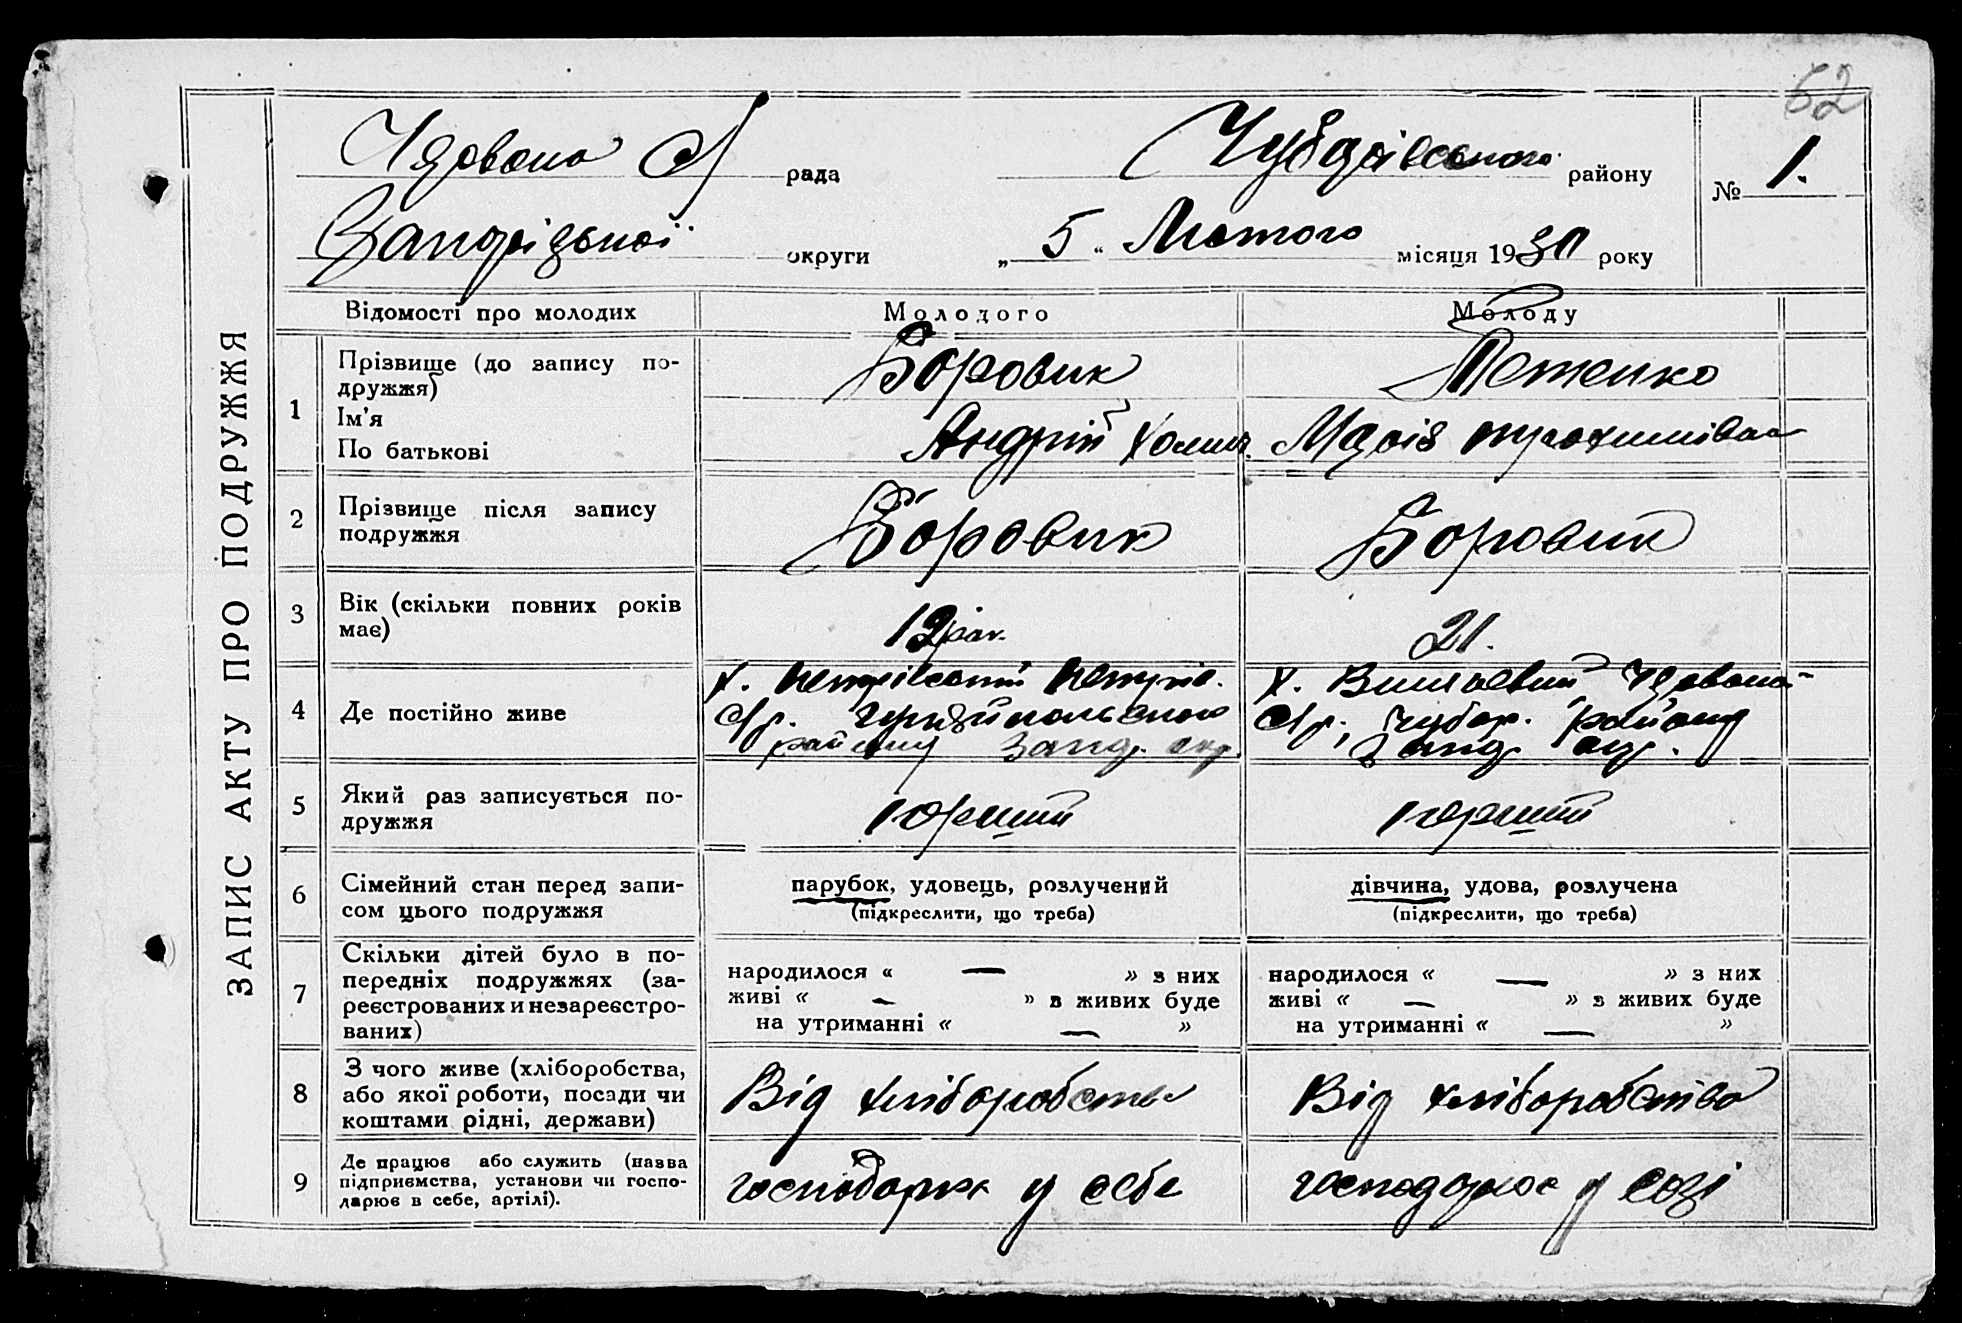 52
ЗАПИС АКТУ ПРО ПОДРУЖЖЯ
рада
Чубарівського району
№ 1.
Запорізької округи
„ 5 “ Лютого місяця 1930 року
Відомості про молодих
Молодого
Молоду
1
Прізвище (до запису по-
дружжя)
Ім'я
По батькові
Боровик
Андрій
Тетенко
Марія
2
Прізвище після запису
подружжя
Боровик
Боровик
3
Вік (скільки повних років
має)
21.
4
Де постійно живе
х. Петрівський
С/р.
району Запор. окр.
х.
С/р., Чубар. району
Запор. окр.
5
Який раз записується по-
дружжя
1 перший
1 перший
6
Сімейний стан перед запи-
сом цього подружжя
парубок, удовець, розлучений
(підкреслити, що треба)
дівчина, удова, розлучена
(підкреслити, що треба)
7
Скільки дітей було в по-
передніх подружжях (за-
реєстрованих и незареєстро-
ваних)
народилося « — » з них
живі « — » в живих буде
на утриманні « — »
народилося « — » з них
живі « — » з живих буде
на утриманні « — »
8
З чого живе (хліборобства,
або якої роботи, посади чи
коштами рідні, держави)
Від хліборобства
Від хліборобства
9
Де працює або служить (назва
підприємства, установи чи госпо-
дарює в себе, артілі).
господарює у себе
господарює у собі